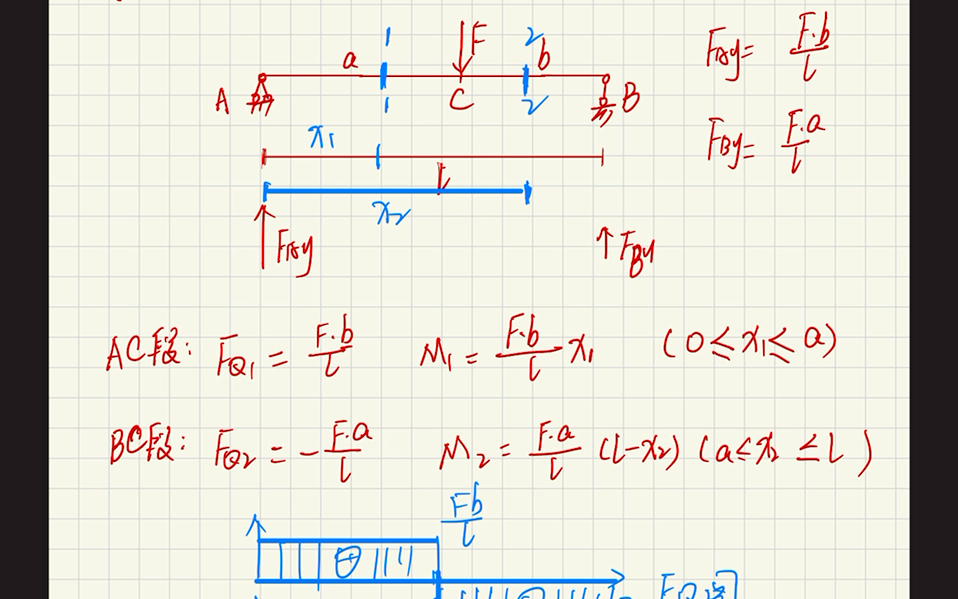 1 F 2
a b
A 1 C 2 B
x₁
l
x₂
F_Ay F_By
F_Ay = F·b/l
F_By = F·a/l
AC段: F_Q1 = F·b/l M₁ = F·b/l x₁ (0≤x₁≤a)
BC段: F_Q2 = -F·a/l M₂ = F·a/l (l-x₂) (a≤x₂≤l)
Fb/l
⊕
F_Q图